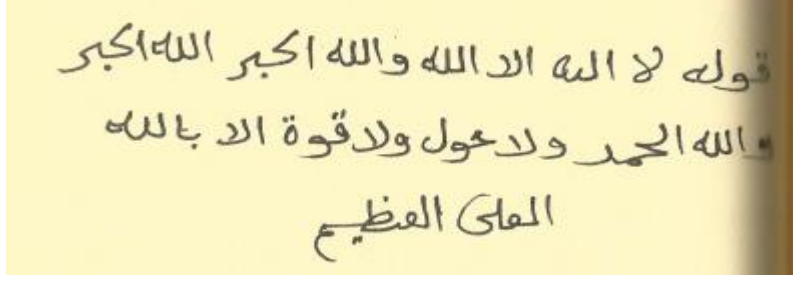 قوله لا اله الا الله والله اكبر الله اكبر
والله الحمد ولا حول ولا قوة الا بالله
العلى العظيم